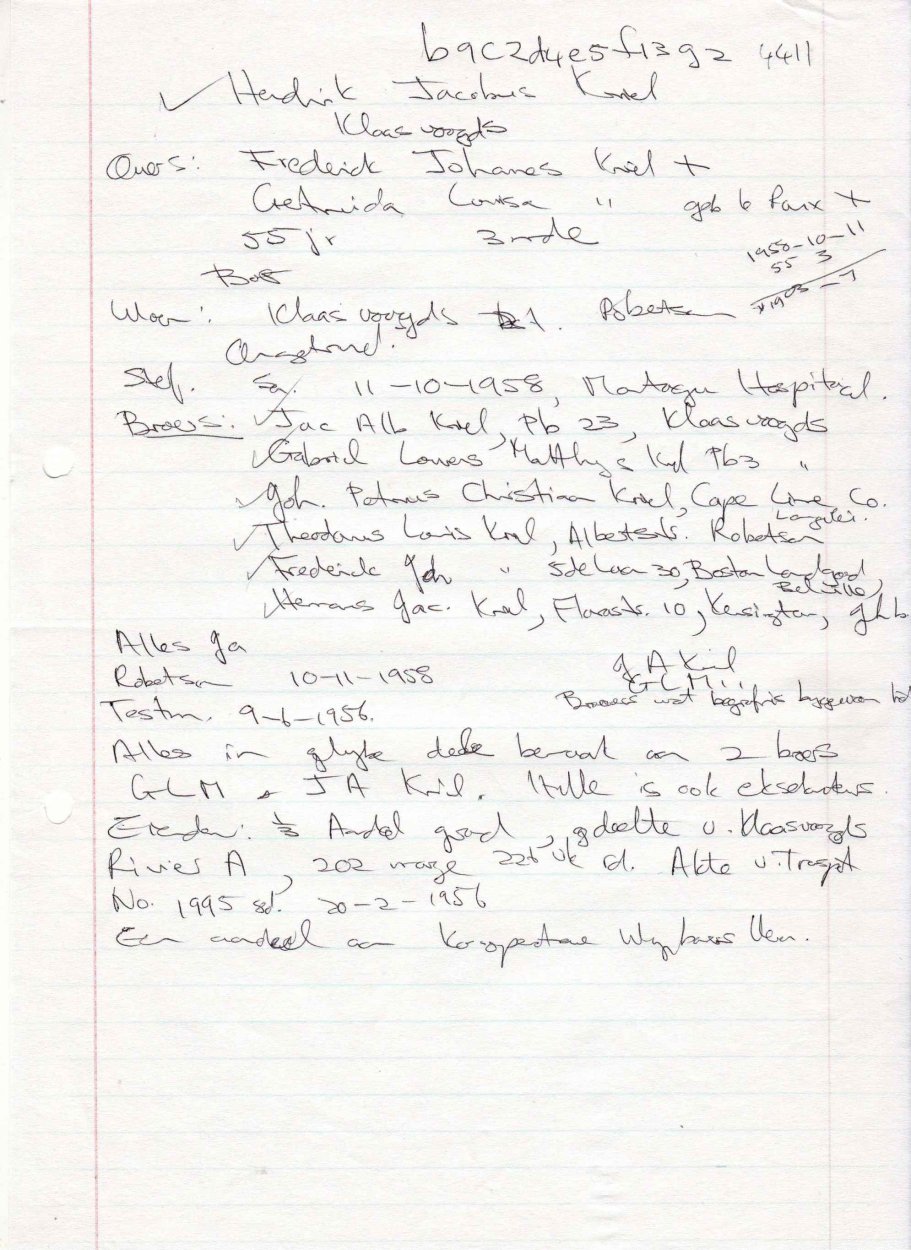 b9c2d4e5f13g2 4411
Hendrik Jacobus Kriel
Klaasvoogds
Ouers: Frederick Johanes Kriel +
Gertruida Louisa " geb le Roux +
55 jr 3 mde
1958-10-11
55 3
*1903-7
Boer
Woon: Klaasvoogds 1. Robertson
Ongetroud.
Sterf. Sa. 11-10-1958, Montagu Hospitaal.
Broers: Jac Alb Kriel, Pb 23, Klaasvoogds
Gabriel Lourens Matthys Kriel Pb3 "
Joh. Petrus Christiaan Kriel, Cape Lime Co.
Langvlei.
Theodorus Louis Kriel, Albertstr. Robertson
Frederick Joh " 5de Laan 30, Boston Landgoed,
Bellville,
Hermanus Jac. Kriel, Str. 10, Kensington, Jhb
Alles Ja
Robertson 10-11-1958
J A Kriel
G L M "
Broers wat begrafnis bygewoon het
Testm. 9-6-1956.
Alles in gelyke dele bemaak aan 2 broers
GLM & JA Kriel. Hulle is ook eksekuteurs.
Eiendom: 1/3 Aandeel grond, gedeelte v. Klaasvoogds
Rivier A, 202 morge 226 vk rd. Akte v. Transpt
No. 1995 gd. 20-2-1956
Een aandeel aan Kooperatiewe Wynbouers Ver.